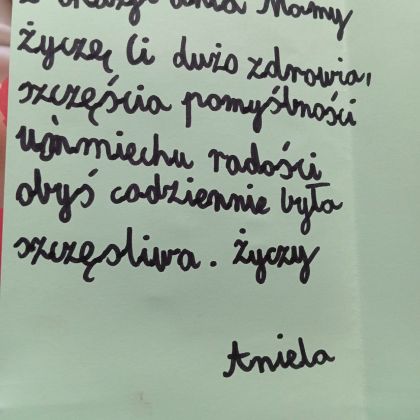 Z okazji dnia Mamy
życzę Ci dużo zdrowia,
szczęścia pomyślności
uśmiechu radości
obyś codziennie była
szczęśliwa. Życzy
Aniela